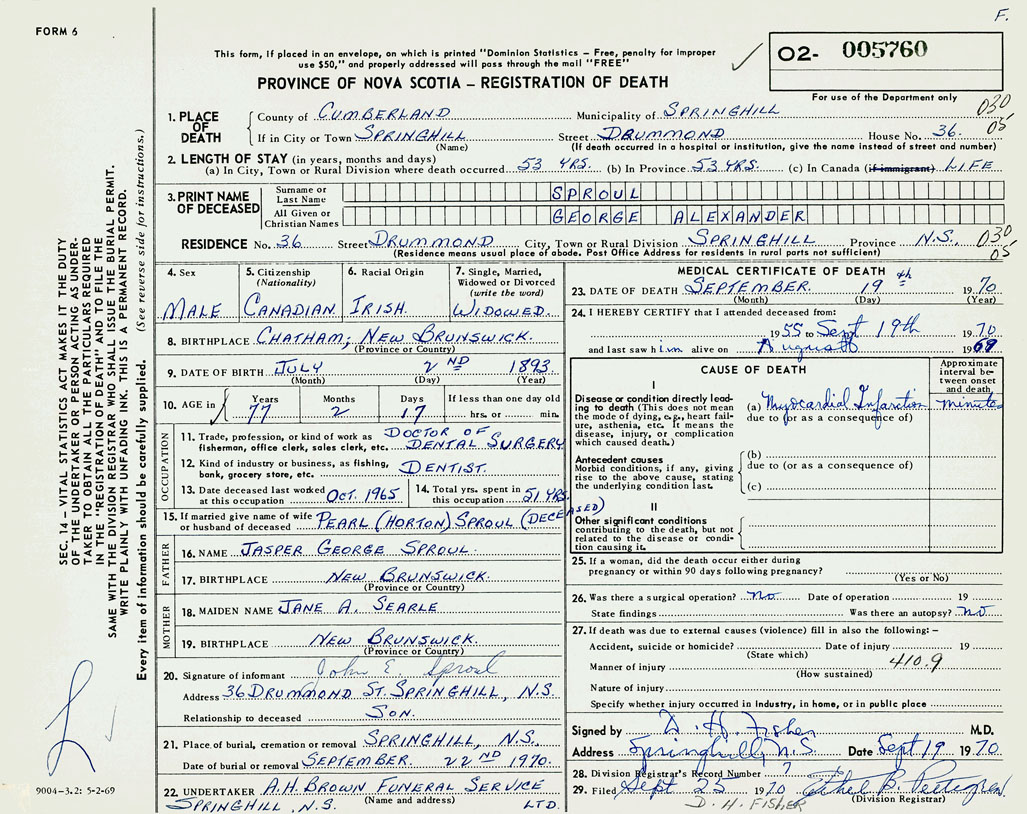 F.
FORM 6
This form, if placed in an envelope, on which is printed "Dominion Statistics – Free, penalty for improper
use $50," and properly addressed will pass through the mail "FREE"
O2- 005760
PROVINCE OF NOVA SCOTIA – REGISTRATION OF DEATH
For use of the Department only
SEC. 14 – VITAL STATISTICS ACT MAKES IT THE DUTY
OF THE UNDERTAKER OR PERSON ACTING AS UNDER-
TAKER TO OBTAIN ALL THE PARTICULARS REQUIRED
IN THE "REGISTRATION OF DEATH" AND TO FILE THE
SAME WITH THE DIVISION REGISTRAR WHO SHALL ISSUE THE BURIAL PERMIT.
WRITE PLAINLY WITH UNFADING INK. THIS IS A PERMANENT RECORD.
Every item of information should be carefully supplied. (See reverse side for instructions.)
1. PLACE OF DEATH
County of CUMBERLAND Municipality of SPRINGHILL 030
If in City or Town SPRINGHILL Street DRUMMOND House No. 36. 05
(Name) (If death occurred in a hospital or institution, give the name instead of street and number)
2. LENGTH OF STAY (in years, months and days)
(a) In City, Town or Rural Division where death occurred 53 YRS. (b) In Province 53 YRS. (c) In Canada (if immigrant) LIFE
3. PRINT NAME OF DECEASED
Surname or Last Name SPROUL
All Given or Christian Names GEORGE ALEXANDER
RESIDENCE No. 36 Street DRUMMOND City, Town or Rural Division SPRINGHILL Province N.S. 030
(Residence means usual place of abode. Post Office Address for residents in rural parts not sufficient) 05
4. Sex
MALE
5. Citizenship
(Nationality)
CANADIAN
6. Racial Origin
IRISH.
7. Single, Married,
Widowed or Divorced
(write the word)
WIDOWED.
8. BIRTHPLACE CHATHAM, NEW BRUNSWICK.
(Province or Country)
9. DATE OF BIRTH JULY 2ND 1893.
(Month) (Day) (Year)
10. AGE in Years Months Days If less than one day old
77 2 17 hrs. or min.
OCCUPATION
11. Trade, profession, or kind of work as
fisherman, office clerk, sales clerk, etc. DOCTOR OF DENTAL SURGERY
12. Kind of industry or business, as fishing,
bank, grocery store, etc. DENTIST.
13. Date deceased last worked
at this occupation OCT. 1965
14. Total yrs. spent in
this occupation 51 YRS.
15. If married give name of wife
or husband of deceased PEARL (HORTON) SPROUL (DECEASED)
FATHER
16. NAME JASPER GEORGE SPROUL.
17. BIRTHPLACE NEW BRUNSWICK.
(Province or Country)
MOTHER
18. MAIDEN NAME JANE A. SEARLE
19. BIRTHPLACE NEW BRUNSWICK.
(Province or Country)
20. Signature of informant John E. Sproul
Address 36 DRUMMOND ST. SPRINGHILL, N.S.
Relationship to deceased SON.
21. Place of burial, cremation or removal SPRINGHILL, N.S.
Date of burial or removal SEPTEMBER. 22ND 1970.
22. UNDERTAKER A.H. BROWN FUNERAL SERVICE
(Name and address) LTD.
SPRINGHILL, N.S.
9004-3.2: 5-2-69
MEDICAL CERTIFICATE OF DEATH
23. DATE OF DEATH SEPTEMBER 19th 1970
(Month) (Day) (Year)
24. I HEREBY CERTIFY that I attended deceased from:
1955 to Sept 19th 1970
and last saw him alive on August 1969
CAUSE OF DEATH
Approximate
interval be-
tween onset
and death
I
Disease or condition directly lead-
ing to death (This does not
mean the mode of dying, e.g., heart fail-
ure, asthenia, etc. It means the
disease, injury, or complication
which caused death.)
(a) Myocardial Infarction minutes
due to (or as a consequence of)
Antecedent causes
Morbid conditions, if any, giving
rise to the above cause, stating
the underlying condition last.
(b)
due to (or as a consequence of)
(c)
II
Other significant conditions
contributing to the death, but not
related to the disease or condi-
tion causing it.
25. If a woman, did the death occur either during
pregnancy or within 90 days following pregnancy?
(Yes or No)
26. Was there a surgical operation? no Date of operation 19
State findings Was there an autopsy? no
27. If death was due to external causes (violence) fill in also the following: –
Accident, suicide or homicide? Date of injury 19
(State which)
410.9
Manner of injury
(How sustained)
Nature of injury
Specify whether injury occurred in industry, in home, or in public place
Signed by D. H. Fisher M.D.
Address Springhill, N.S. Date Sept 19 1970
28. Division Registrar's Record Number ?
29. Filed Sept 25 1970 Ethel B.
D. H. FISHER (Division Registrar)